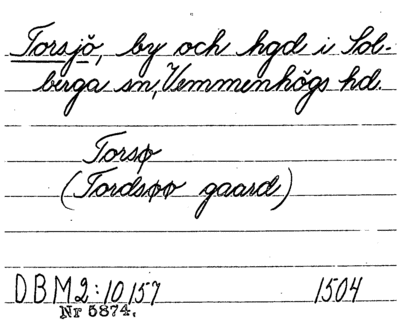 Torsjö, by och hgd i Sol-
berga sn, Vemmenhögs hd.
Torsø
(Tordsøø gaard)
DBM2:10157 1504
Nr 5874.